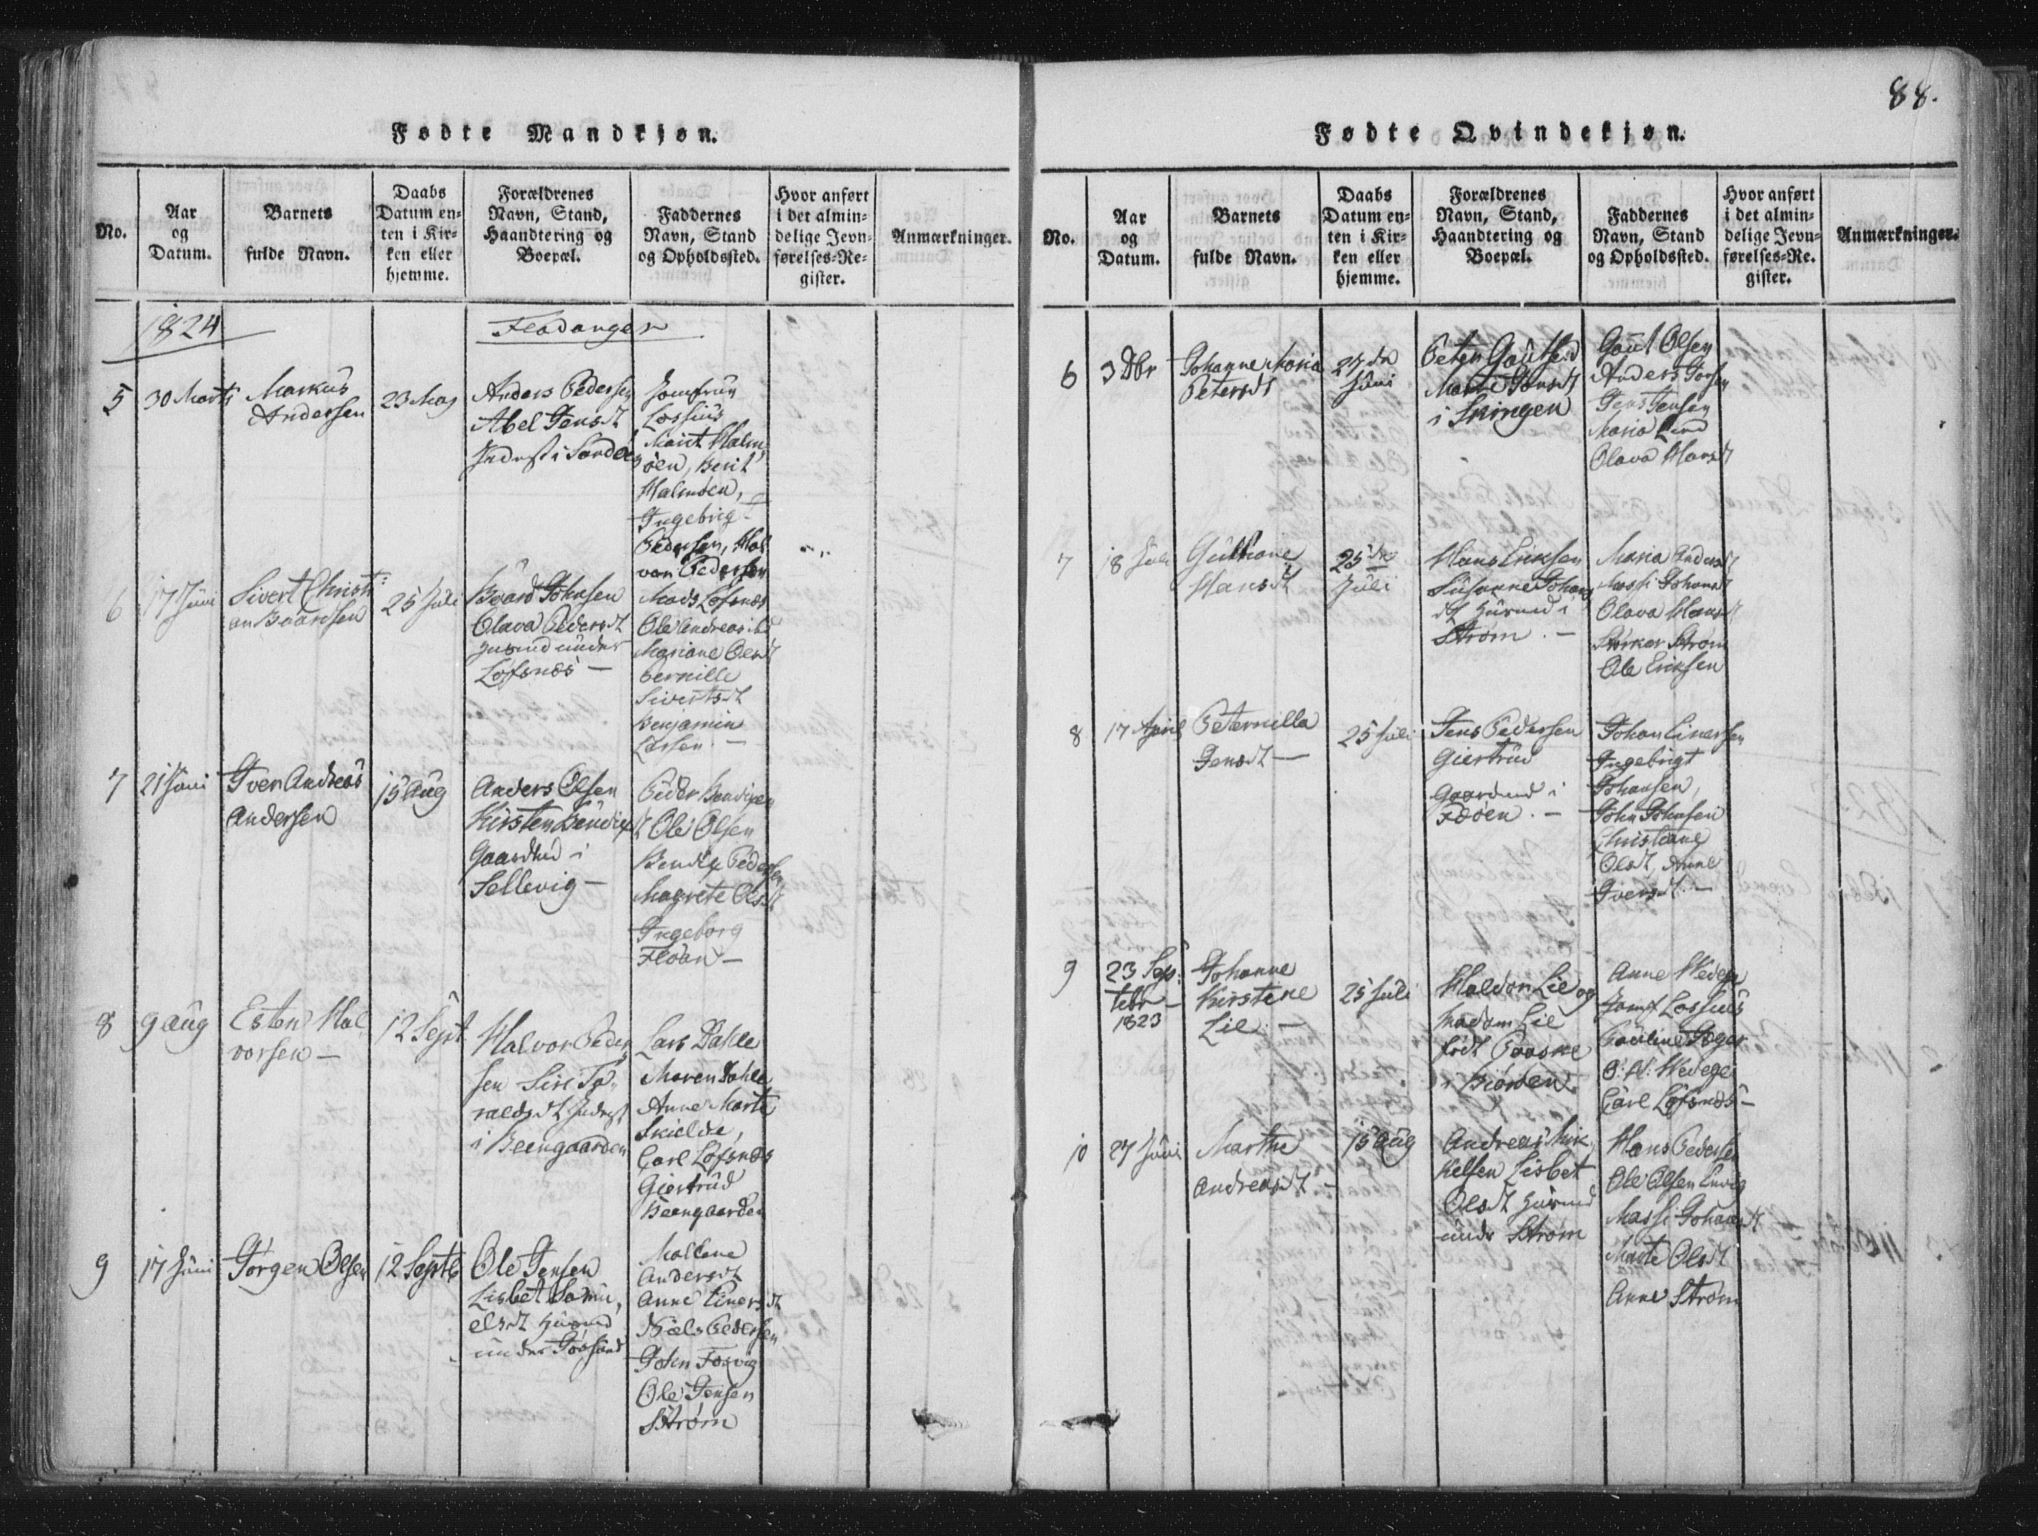 88.
Fødte Mandkjøn.
No.
Aar
og
Datum.
Barnets
fulde Navn.
Daabs
Datum en-
ten i Kir-
ken eller
hjemme.
Forældrenes
Navn, Stand,
Haandtering og
Boepæl.
Faddernes
Navn, Stand
og Opholdssted.
Hvor anført
i det almin-
delige Jevn-
førelses-Re-
gister.
Anmærkninger.
1824
Fladanger
5
30 Marts
Markus
Andersen
23 Maj
Anders Pedersen
Abel Jensdt
Inderst i Sandek
Jomfrue
Lossius
Marit Halm,
öen, Berit
Halmöen,
Ingebrig
Pedersen, Hal
vor Pedersen
6
17 Juni
Sivert Christi
an Baardsen
25 Juli
Baard Johnsen
Olava Pedersdt
Husmd under
Löfsnæs —
Mads Löfsnæs
Ole Andreas
Mariane Olsdt
Pernille
Sivertsdt
Benjamin
Larsen. —
7
21 Juni
Iver Andreas
Andersen
15 Aug
Anders Olsen
Kirsten Bendixdt
Gaardmd i
Sellevig —
Peder Bendixen
Ole Olsen
Bendix Pedersen
Magrete Olsdt
Ingeborg
Floan —
8
9 Aug
Esten Hal
vorsen —
12 Sept
Halvor Peder
sen Siri To,
raldsdt Inderst
i Beengaarden
Lars Dahle
Maren Dahle
Anne Marte
Skielde,
Carl Löfsnæs
Giertrud
Beengaarden
9
17 Juni
Jörgen Olsen
12 Septb
Ole Jensen
Lisbet Samu,
elsdt Husmd
under Jössund
Mallene
Andersdt
Anne Einersdt
Niels Pedersen
John Fosvig
Ole Jensen
Ström
Fødte Qvindekjøn.
No.
Aar
og
Datum.
Barnets
fulde Navn.
Daabs
Datum en-
ten i Kir-
ken eller
hjemme.
Forældrenes
Navn, Stand,
Haandtering og
Boepæl.
Faddernes
Navn, Stand
og Opholdssted.
Hvor anført
i det almin-
delige Jevn-
førelses-Re-
gister.
Anmærkninger.
6
3 Dbr
Johanne Maria
Petersdt
27 da
Juni
Peter Gautsen
Marte Jonsdt
i Svingen
Gaut Olsen
Anders Jonsen
Jens Jensen
Maria Lund
Olava Hansdt
7
18 Juli
Gulliane
Hansdt
25 de
Juli
Hans Eriksen
Susanne Johans
dt Husmd i
Ström. —
Maria Andersdt
Massi Johansdt
Olava Hansdt
Störker Ström
Ole Eriksen
8
17 April
Peternilla
Jensdt —
25 Juli
Jens Pedersen
Giertrud
Gaardmd i
Fedöen. —
Johan Einersen
Ingebrigt
Johansen,
John Johnsen
Christiane
Olsdt, Anne
Iversdt. —
9
23 Sep:
tebr —
1823
Johanne
Kirstene
Lie. —
25 Juli
Haldor Lie og
Madam Lie
født Paaske
i Biören
Anne Wedege
Jomf Lossius
Pauline Jeger
O: N: Wedege
Carl Löfsnæs —
10
27 Juni
Marthe
Andreasdt. —
15 Aug
Andreas Mik
kelsen Lisbet
Olsdt Husmd
under Ström
Hans Pedersen
Ole Olsen Envig
Massi Johansdt
Marte Olsdt
Anne Ström